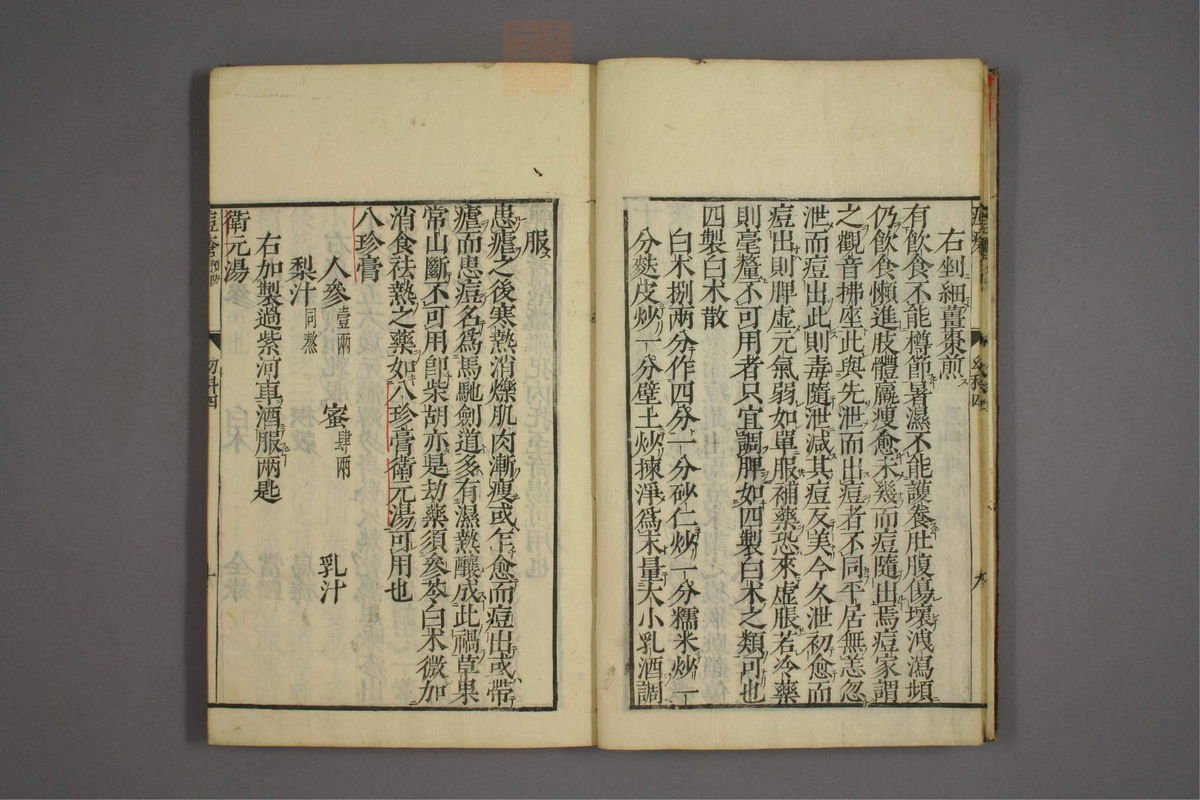 右剉細薑棗煎
有飲食不能樽節暑濕不能護養肚腹傷壞洩瀉頻
仍飲食懶進肢體羸瘦愈未幾而痘隨出焉痘家謂
之觀音拂座此與先泄而出痘者不同平居無恙忽
泄而痘出此則毒隨泄減其痘反美今久泄初愈而
痘出則脾虛元氣弱如單服補藥恐來虛脹若冷藥
則毫釐不可用者只宜調脾如四製白朮之類可也
四製白朮散
白朮捌兩分作四分一分砂仁炒一分糯米炒一
分麩皮炒一分壁土炒揀淨為末量大小乳酒調
服
患瘧之後寒熱消爍肌肉漸瘦或乍愈而痘出或帶
瘧而患痘名爲馬馳劍道多有濕熱釀成此禍草果
常山斷不可用卽柴胡亦是劫藥須參苓白朮微加
消食祛熱之藥如八珍膏衛元湯可用也
八珍膏
人參壹兩 蜜肆兩 乳汁
梨汁同熬
右加製過紫河車酒服兩匙
衛元湯